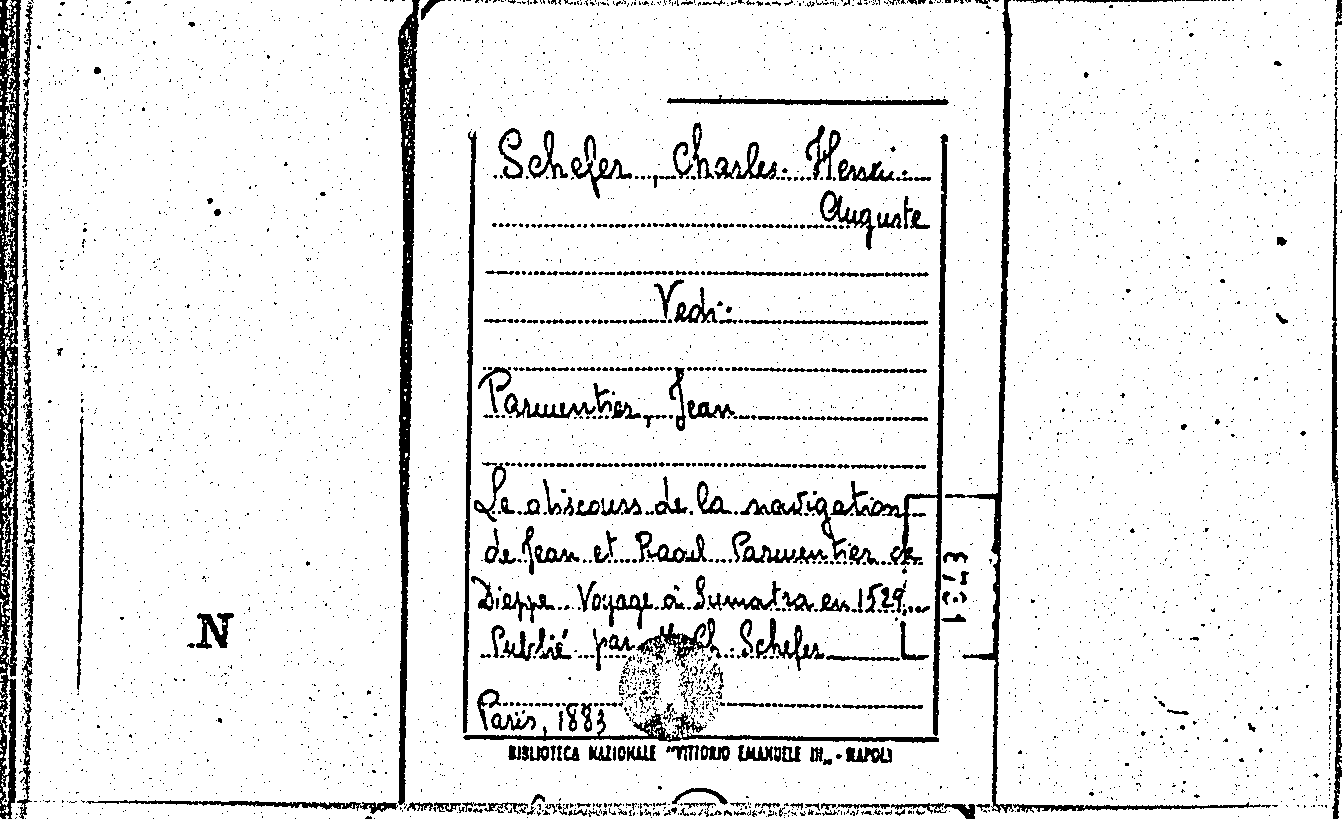 Schefer, Charles-Henri-
Auguste
Vedi:
Parmentier, Jean
Le discours de la navigation
de Jean et Raoul Parmentier de
Dieppe. Voyage à Sumatra en 1529..
Publié par M. Ch. Schefer
Paris, 1883
BIBLIOTECA NAZIONALE "VITTORIO EMANUELE III„ - NAPOLI
N